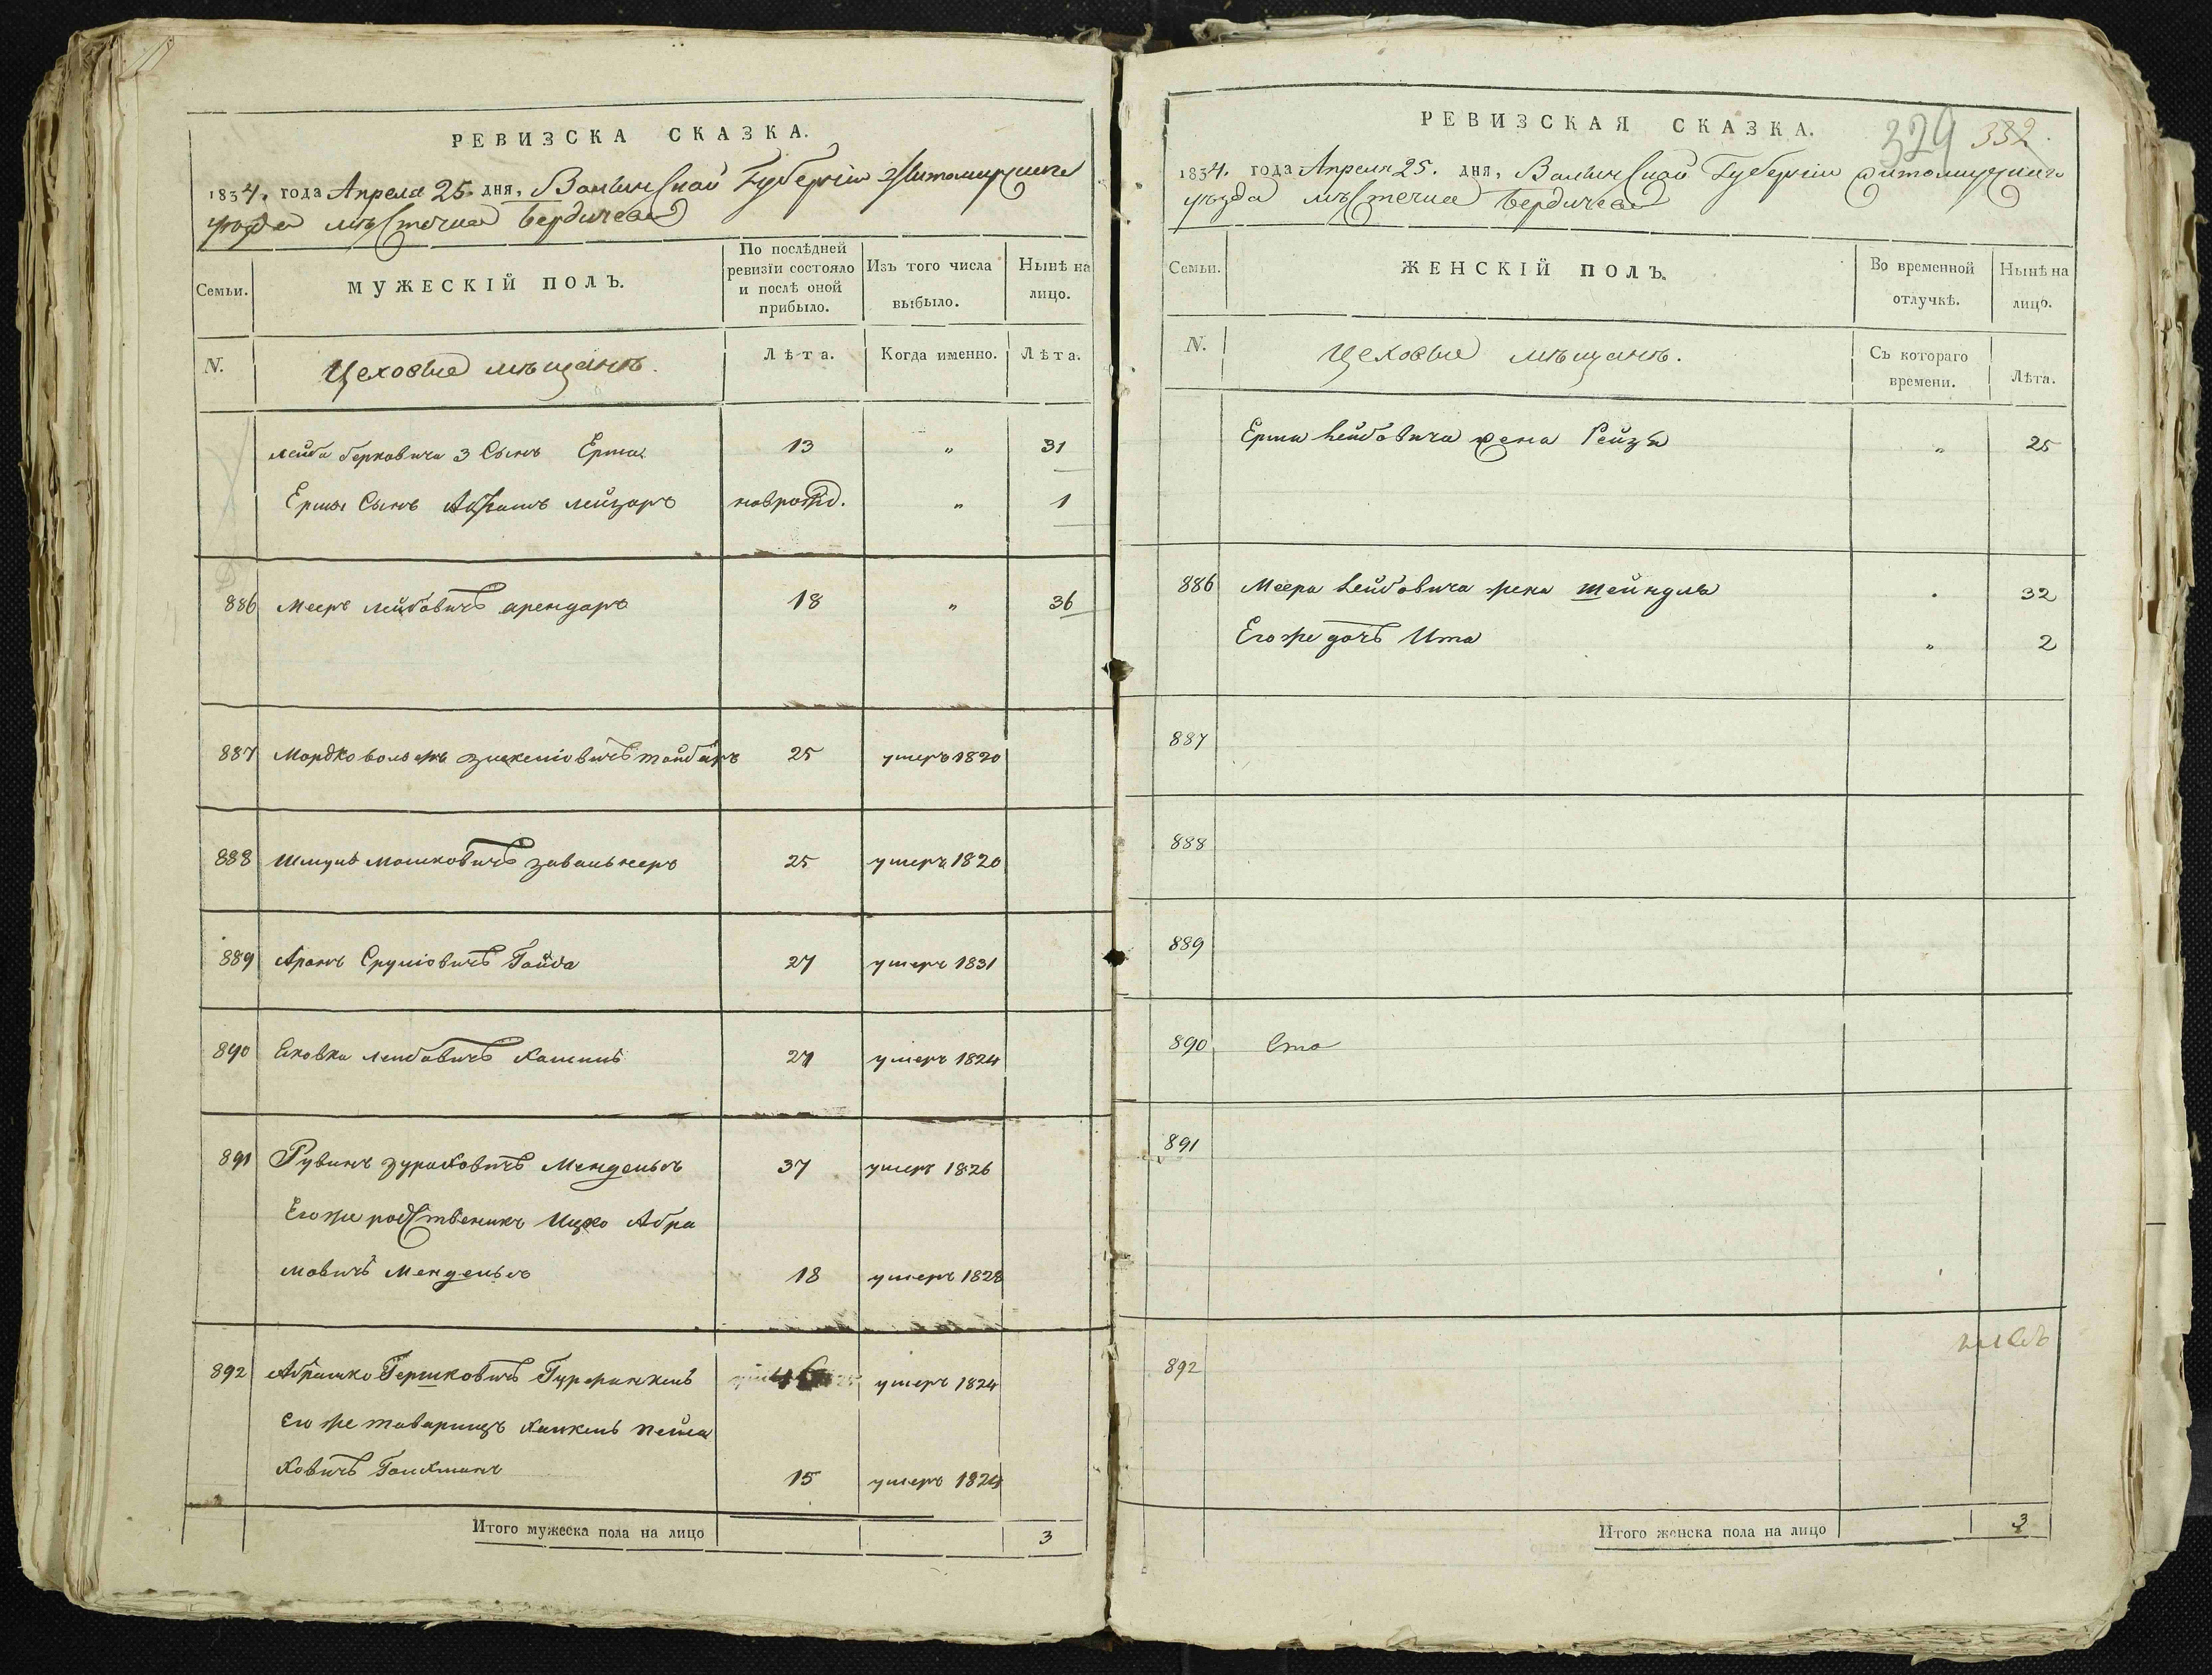 РЕВИЗСКА СКАЗКА.
1834. года Апреля 25. дня, Волынской Губерніи Житомирскаго
уезда мѣстечка Бердичева
Семьи.
МУЖЕСКІЙ ПОЛЪ.
По послѣдней
ревизіи состояло
и послѣ оной
прибыло.
Изъ того числа
выбыло.
Нынѣ на
лицо.
N.
Цеховые мѣщанѣ.
Лѣта.
Когда именно.
Лѣта.
Лейба Берковича 3 Сынъ Ерша 13 " 31
Ерша Сынъ Абрамъ Лейзаръ новрожд. " 1
886 Мееръ Лейбовичъ арендаръ 18 " 36
887 Мордко 25 умеръ 1820
888 Шмуль Мошковичъ 25 умеръ 1820
889 Аронъ Сруліовичъ Гойда 27 умеръ 1831
890 Лейбовичъ 27 умеръ 1824
891 Рувинъ Мендельсъ 37 умеръ 1826
Его же родственикъ Ицко Абра
мовичъ Мендельсъ 18 умеръ 1828
892 Абрамко Гершковичъ 46 умеръ 1824
Его же товарищъ Пейса
ховичъ 15 умеръ 1824
Итого мужеска пола на лицо 3
РЕВИЗСКАЯ СКАЗКА.
329 332
1834. года Апреля 25. дня, Волынской Губерніи Житомирскаго
уѣзда мѣстечка Бердичева
Семьи.
ЖЕНСКІЙ ПОЛЪ.
Во временной
отлучкѣ.
Нынѣ на
лицо.
N.
Цеховые мѣщанѣ.
Съ котораго
времени.
Лѣта.
Ерши Лейбовича жена Рейзя " 25
886 Меера Лейбовича жена Шейндля " 32
Его же дочъ Ита " 2
887
888
889
890
891
892
Итого женска пола на лицо 3